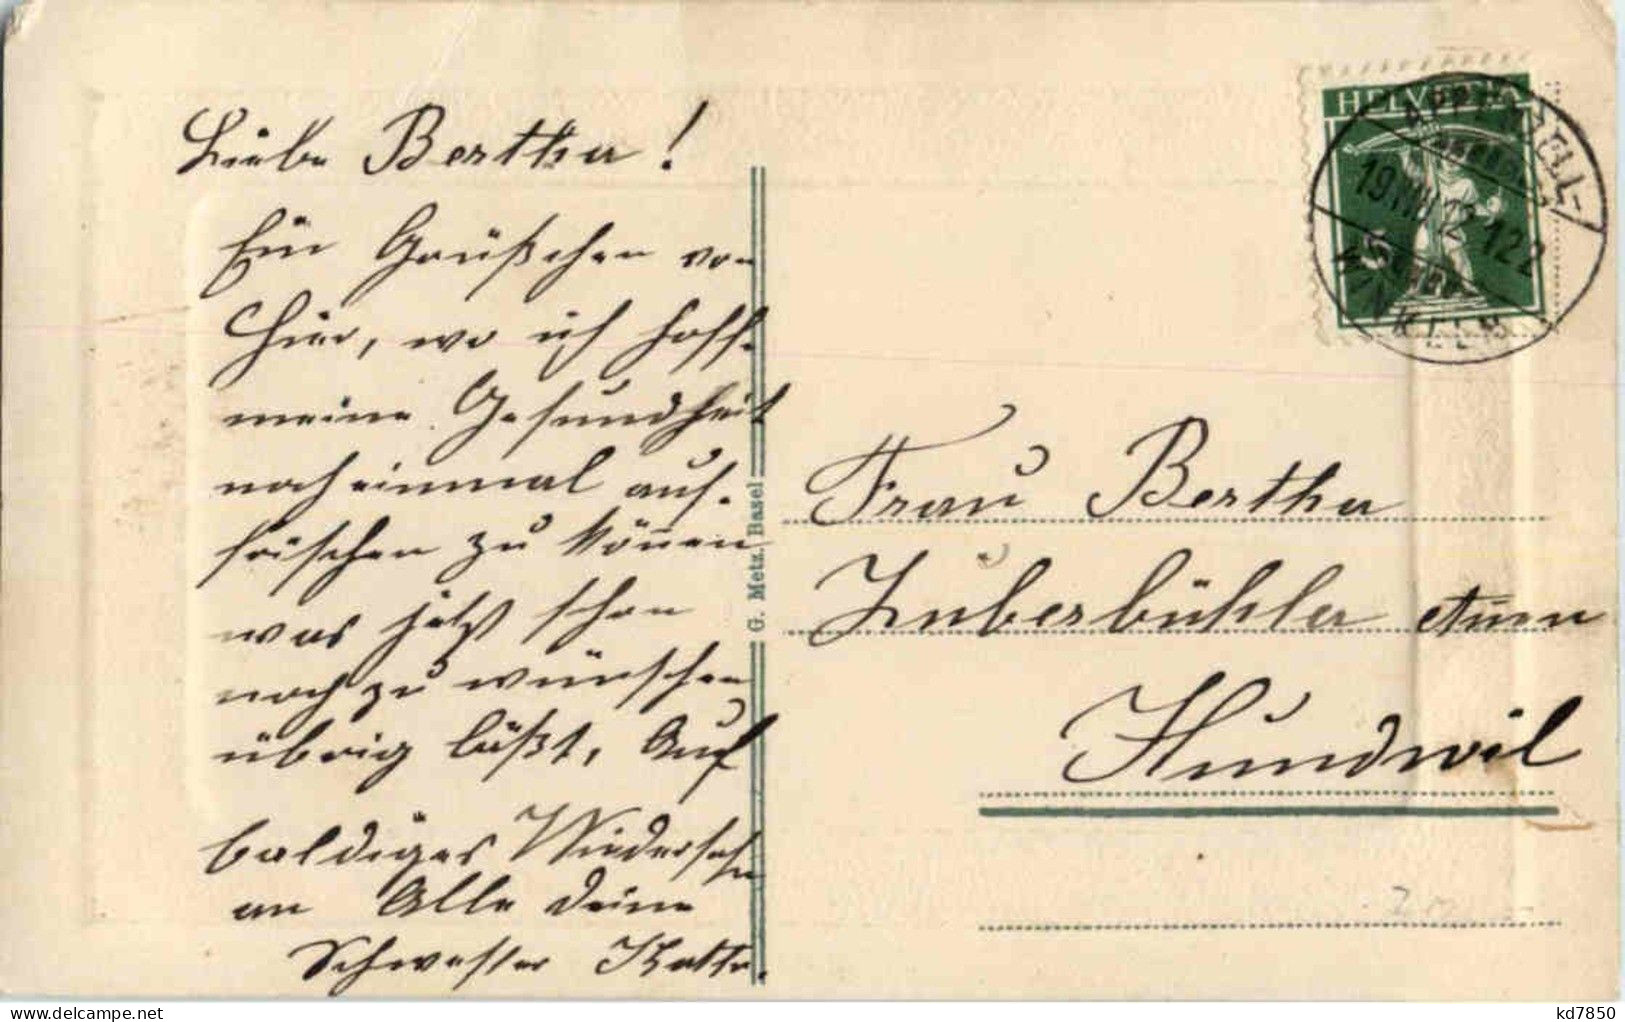 Liebe Bertha!
Ein Grüßchen von
hier, wo ich hoffe
meine Gesundheit
noch einmal auf-
frischen zu können
was jetzt schon
noch zu wünschen
übrig läßt. Auf
baldiges Wiedersehn
an Alle Deine
Schwester
G. Metz, Basel
HELVETIA
5
APPENZELL-
19.VIII.12.
WINKELN
Frau Bertha
Zuberbühler Auen
Hundwil
kd7850
delcampe.net